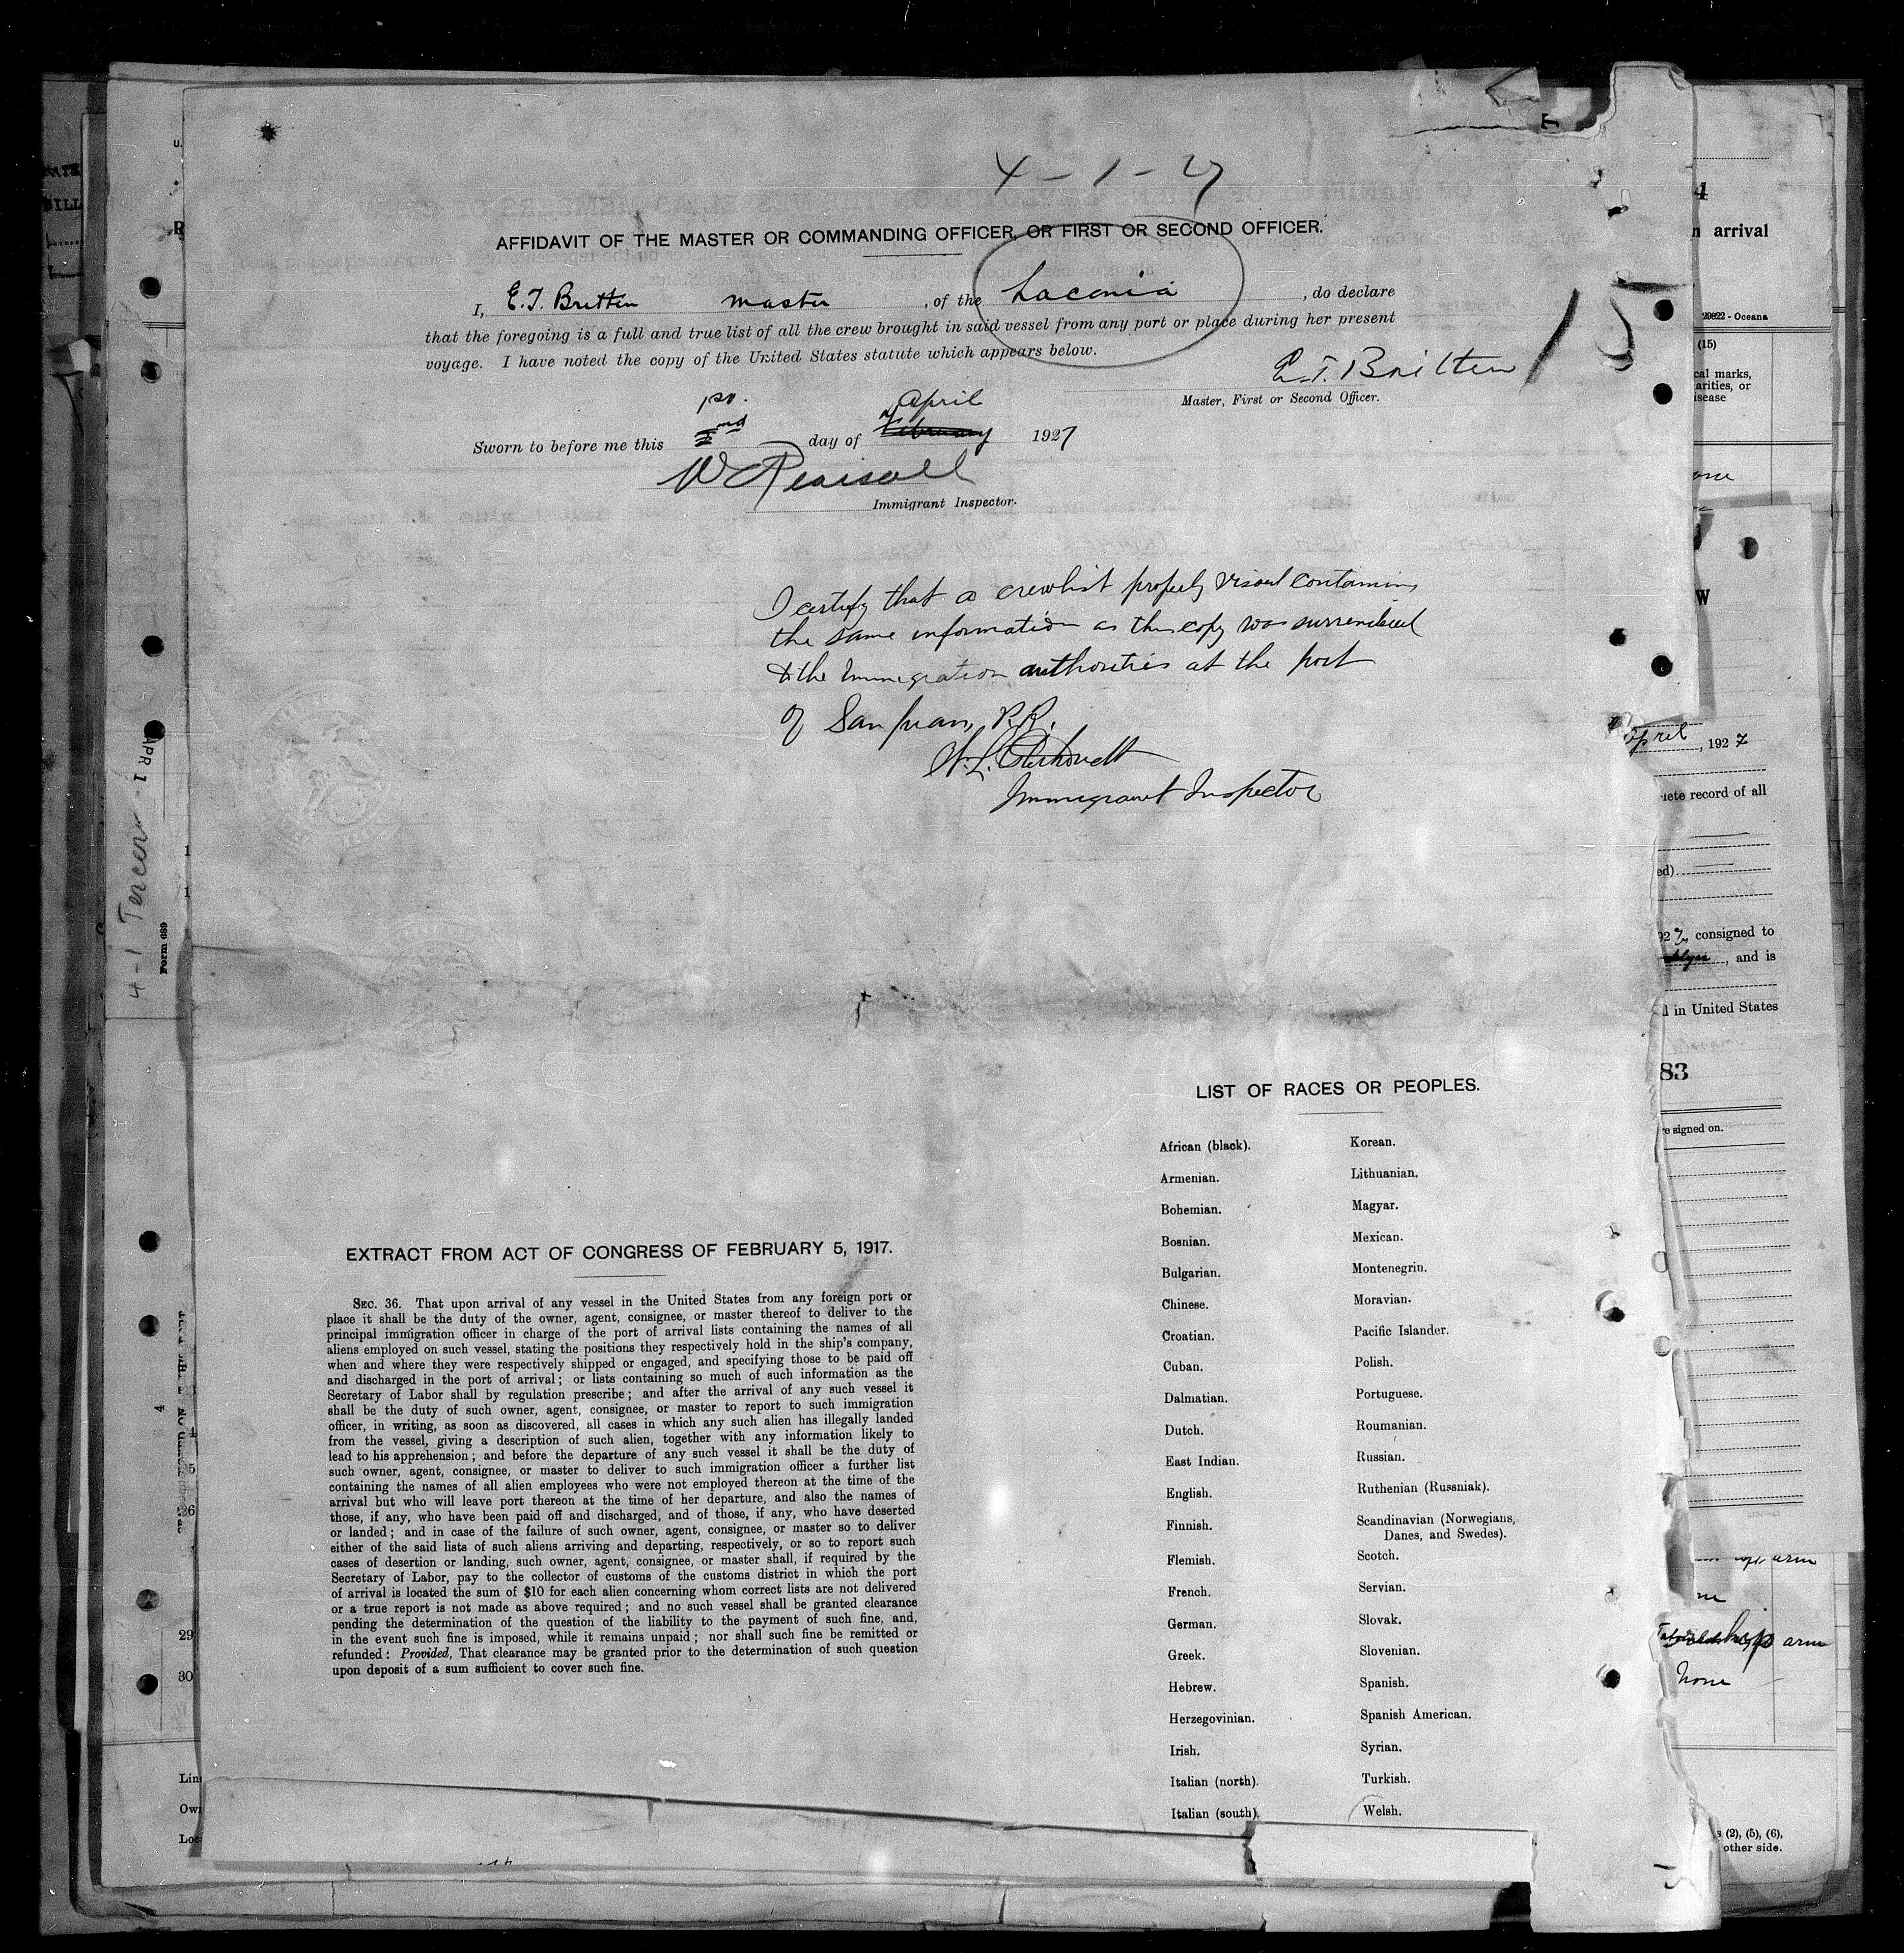 4-1-27
AFFIDAVIT OF THE MASTER OR COMMANDING OFFICER, OR FIRST OR SECOND OFFICER.
I, E.T. Britten master, of the Laconia, do declare
that the foregoing is a full and true list of all the crew brought in said vessel from any port or place during her present
voyage. I have noted the copy of the United States statute which appears below.
15
E.T. Britten
Master, First or Second Officer.
April
Sworn to before me this 2nd day of February 1927
W Pearsall
Immigrant Inspector.
I certify that a crewlist properly visaed containing
the same information as this copy was surrendered
to the Immigration authorities at the port
of San Juan, P.R.
Immigrant Inspector
LIST OF RACES OR PEOPLES.
African (black). Korean.
Armenian. Lithuanian.
Bohemian. Magyar.
Bosnian. Mexican.
Bulgarian. Montenegrin.
Chinese. Moravian.
Croatian. Pacific Islander.
Cuban. Polish.
Dalmatian. Portuguese.
Dutch. Roumanian.
East Indian. Russian.
English. Ruthenian (Russniak).
Finnish. Scandinavian (Norwegians,
Danes, and Swedes).
Flemish. Scotch.
French. Servian.
German. Slovak.
Greek. Slovenian.
Hebrew. Spanish.
Herzegovinian. Spanish American.
Irish. Syrian.
Italian (north). Turkish.
Italian (south). Welsh.
EXTRACT FROM ACT OF CONGRESS OF FEBRUARY 5, 1917.
SEC. 36. That upon arrival of any vessel in the United States from any foreign port or
place it shall be the duty of the owner, agent, consignee, or master thereof to deliver to the
principal immigration officer in charge of the port of arrival lists containing the names of all
aliens employed on such vessel, stating the positions they respectively hold in the ship's company,
when and where they were respectively shipped or engaged, and specifying those to be paid off
and discharged in the port of arrival; or lists containing so much of such information as the
Secretary of Labor shall by regulation prescribe; and after the arrival of any such vessel it
shall be the duty of such owner, agent, consignee, or master to report to such immigration
officer, in writing, as soon as discovered, all cases in which any such alien has illegally landed
from the vessel, giving a description of such alien, together with any information likely to
lead to his apprehension; and before the departure of any such vessel it shall be the duty of
such owner, agent, consignee, or master to deliver to such immigration officer a further list
containing the names of all alien employees who were not employed thereon at the time of the
arrival but who will leave port thereon at the time of her departure, and also the names of
those, if any, who have been paid off and discharged, and of those, if any, who have deserted
or landed; and in case of the failure of such owner, agent, consignee, or master so to deliver
either of the said lists of such aliens arriving and departing, respectively, or so to report such
cases of desertion or landing, such owner, agent, consignee, or master shall, if required by the
Secretary of Labor, pay to the collector of customs of the customs district in which the port
of arrival is located the sum of $10 for each alien concerning whom correct lists are not delivered
or a true report is not made as above required; and no such vessel shall be granted clearance
pending the determination of the question of the liability to the payment of such fine, and,
in the event such fine is imposed, while it remains unpaid; nor shall such fine be remitted or
refunded: Provided, That clearance may be granted prior to the determination of such question
upon deposit of a sum sufficient to cover such fine.
APR 1
4-1
Form 689
29
30
Lin
Own
Loc
4
n arrival
29822 - Oceana
(15)
cal marks,
arities, or
isease
W
April, 1927
lete record of all
ed)
927, consigned to
, and is
d in United States
83
re signed on.
arm
arm
None
s (2), (5), (6),
other side.